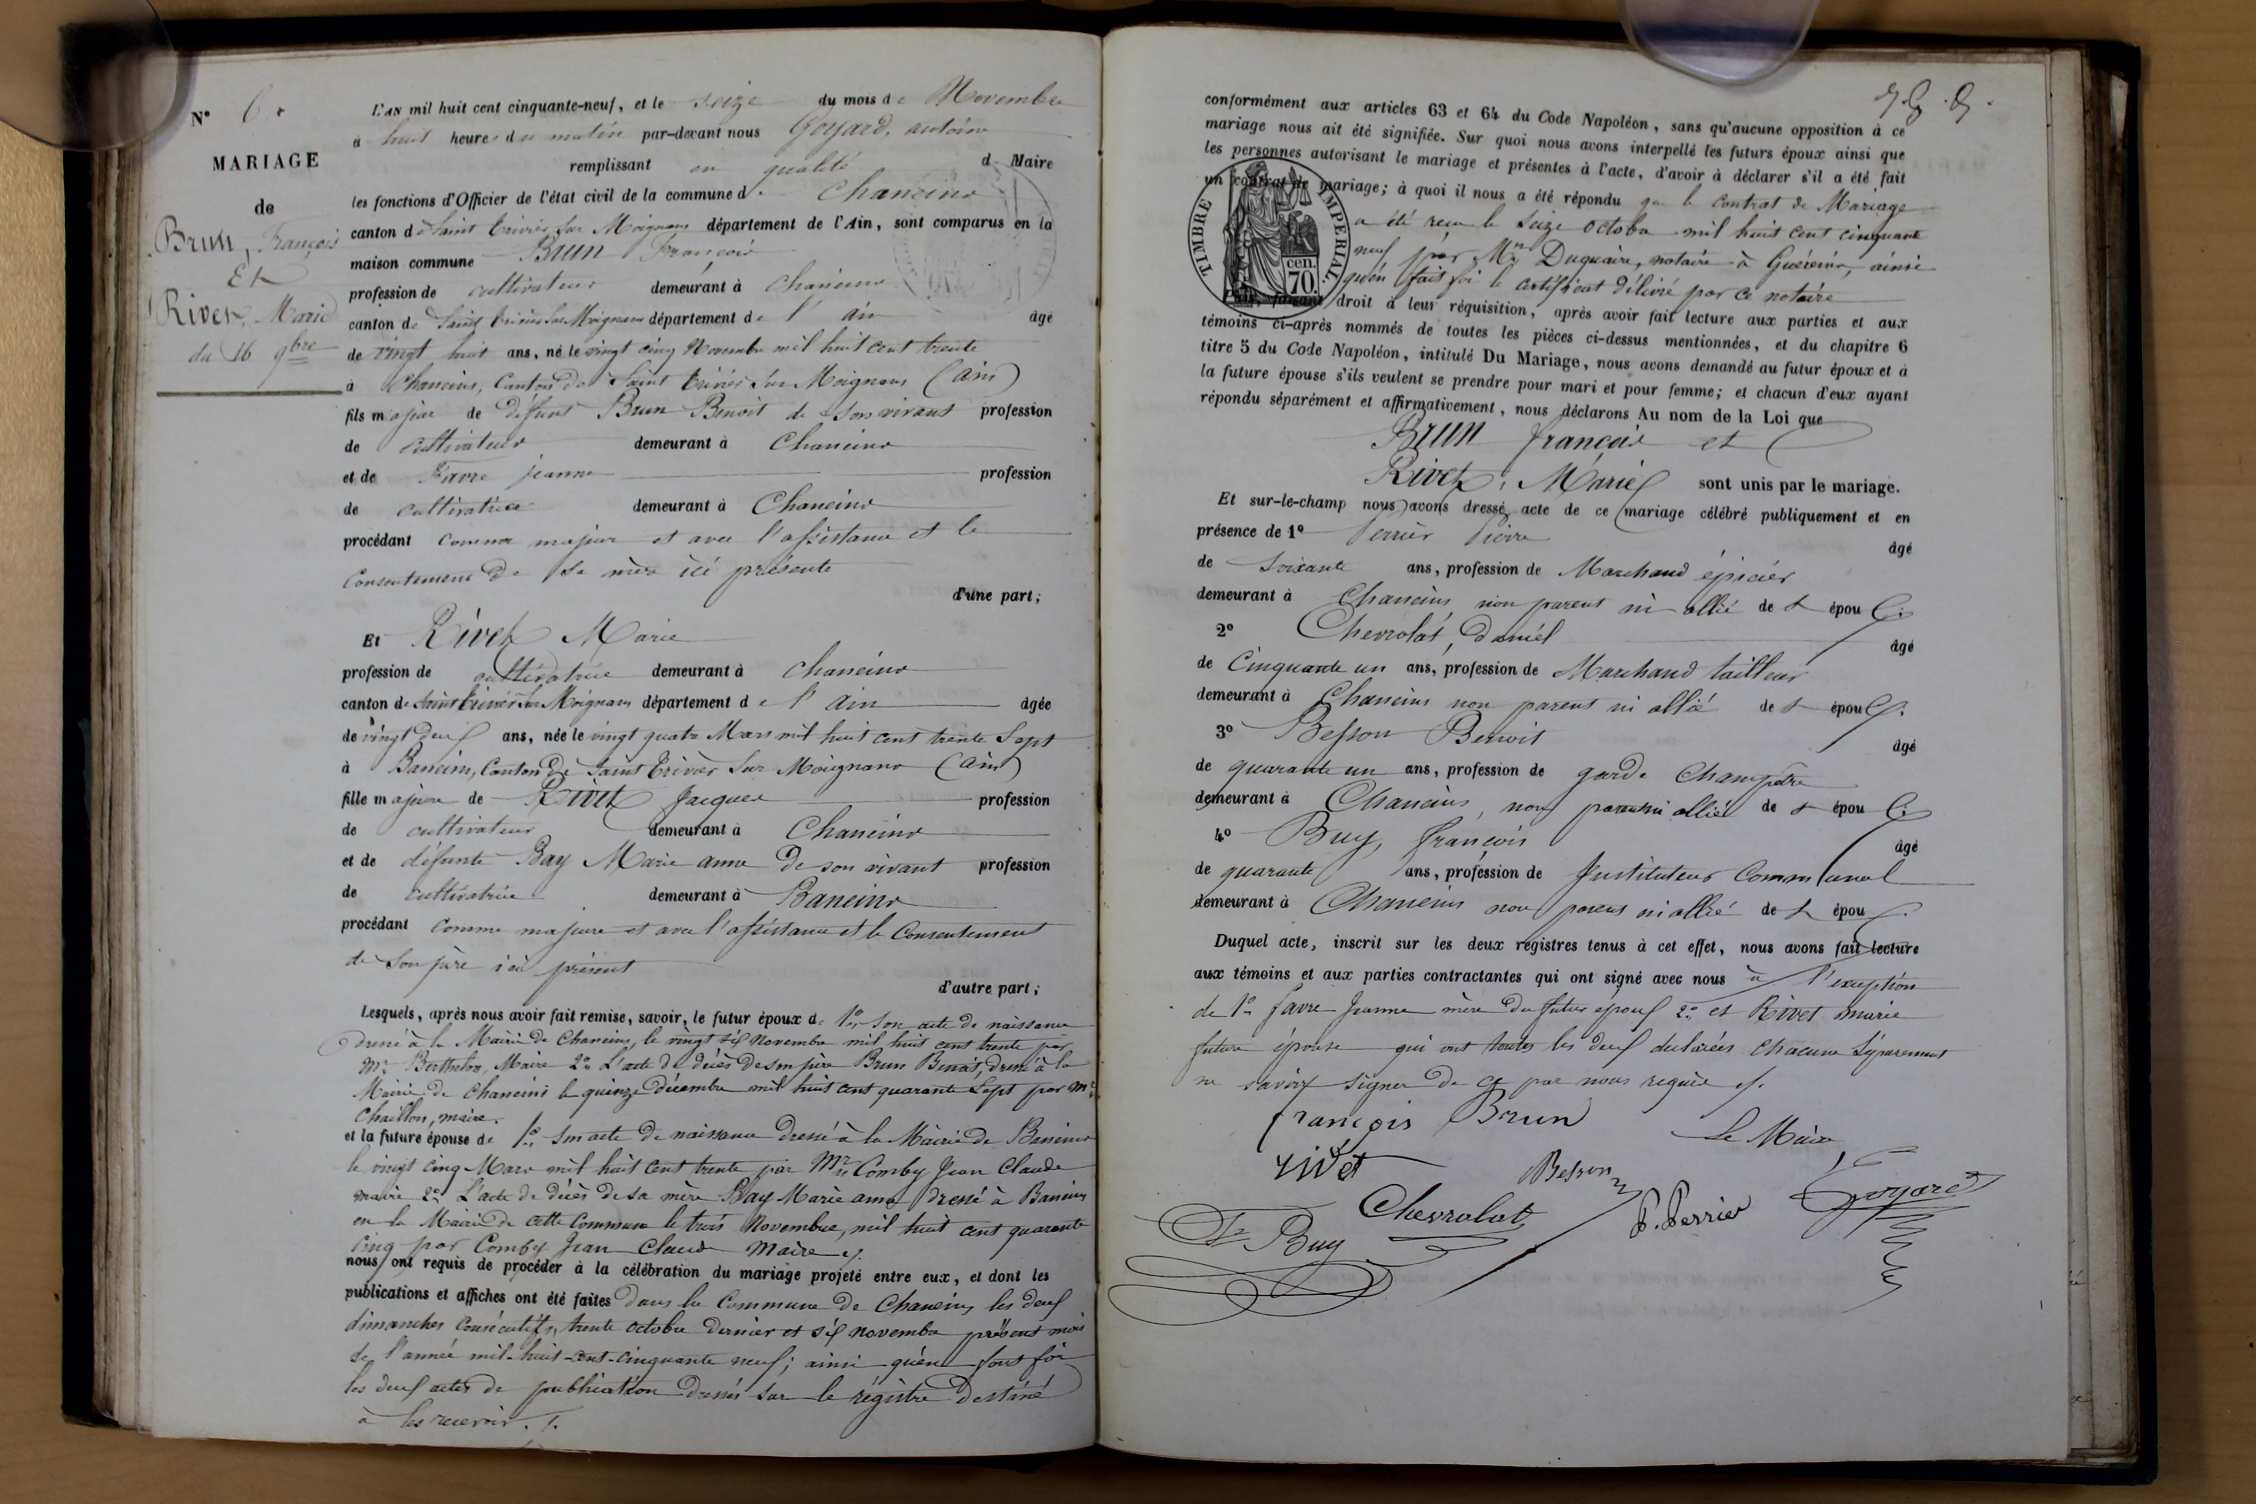 N° 6.
MARIAGE
de
Brun, François
Et
Rivet, Marie
du 16 9bre
L'AN mil huit cent cinquante-neuf, et le seize du mois de Novembre
à huit heures du matin par-devant nous Goyard, antoine
remplissant en qualité de Maire
les fonctions d'Officier de l'état civil de la commune de Chaneins
canton de Saint Trivier sur Moignans département de l'Ain, sont comparus en la
maison commune Brun François
profession de cultivateur demeurant à Chaneins
canton de Saint Trivier sur Moignans département de l' ain âgé
de vingt huit ans, né le vingt cinq Novembre mil huit cent trente
à Chaneins, Canton de Saint Trivier sur Moignans (Ain)
fils majeur de défunt Brun Benoit de son vivant profession
de cultivateur demeurant à Chaneins
et de Favre jeanne profession
de cultivatrice demeurant à Chaneins
procédant comme majeur et avec l'assistance et le
Consentement de sa mère ici présente
d'une part;
Et Rivet Marie
profession de cultivatrice demeurant à Chaneins
canton de Saint Trivier sur Moignans département de l' Ain âgée
de vingt deux ans, née le vingt quatre Mars mil huit cent trente Sept
à Baneins, Canton de Saint Trivier sur Moignans (Ain)
fille majeure de Rivet Jacques profession
de cultivateur demeurant à Chaneins
et de défunte Bay Marie anne de son vivant profession
de cultivatrice demeurant à Baneins
procédant comme majeure et avec l'assistance et le Consentement
de Son père ici présent
d'autre part;
Lesquels, après nous avoir fait remise, savoir, le futur époux de 1° Son acte de naissance
dressé à la Mairie de Chaneins, le vingt six Novembre mil huit cent trente par
Mr Berthelon, Maire 2° L'acte de décès de son père Brun Benoit, dressé à la
Mairie de Chaneins le quinze décembre mil huit cent quarante Sept par Mr
Chaillon, maire.
et la future épouse de 1° Son acte de naissance dressé à la Mairie de Baneins
le vingt cinq Mars mil huit cent trente par Mr Comby Jean Claude
maire 2° L'acte de décès de sa mère Bay Marie anne dressé à Baneins
en la Mairie de cette Commune le trois Novembre, mil huit cent quarante
cinq par Comby Jean Claude Maire
nous ont requis de procéder à la célébration du mariage projeté entre eux, et dont les
publications et affiches ont été faites dans la Commune de Chaneins les deux
dimanches consécutifs, trente octobre dernier et six novembre présent mois
de l'année mil-huit-cent-cinquante neuf; ainsi qu'en font foi
les deux actes de publication dressés sur le régistre destiné
à les recevoir.
conformément aux articles 63 et 64 du Code Napoléon, sans qu'aucune opposition à ce
mariage nous ait été signifiée. Sur quoi nous avons interpellé les futurs époux ainsi que
les personnes autorisant le mariage et présentes à l'acte, d'avoir à déclarer s'il a été fait
un contrat de mariage; à quoi il nous a été répondu que le contrat de Mariage
a été reçu le Seize octobre mil huit cent cinquante
neuf par Mr Duquaire, notaire à Guéreins, ainsi
qu'en fait foi le certificat délivré par ce notaire
TIMBRE IMPERIAL.
cen.
70.
Puis, faisant droit à leur réquisition, après avoir fait lecture aux parties et aux
témoins ci-après nommés de toutes les pièces ci-dessus mentionnées, et du chapitre 6
titre 5 du Code Napoléon, intitulé Du Mariage, nous avons demandé au futur époux et à
la future épouse s'ils veulent se prendre pour mari et pour femme; et chacun d'eux ayant
répondu séparément et affirmativement, nous déclarons Au nom de la Loi que
Brun françois et
Rivet, Marie sont unis par le mariage.
Et sur-le-champ nous avons dressé acte de ce mariage célébré publiquement et en
présence de 1° Perrier Pierre âgé
de Soixante ans, profession de Marchand épicier
demeurant à Chaneins non parent ni allié de époux
2° Chevrolat, Daniel âgé
de Cinquante un ans, profession de Marchand tailleur
demeurant à Chaneins non parent ni allié de époux
3° Besson Benoit âgé
de quarante un ans, profession de garde Champêtre
demeurant à Chaneins, non parent ni allié de époux
4° Buy, françois âgé
de quarante ans, profession de Instituteur Communal
demeurant à Chaneins non parent ni allié de époux
Duquel acte, inscrit sur les deux registres tenus à cet effet, nous avons fait lecture
aux témoins et aux parties contractantes qui ont signé avec nous à l'exception
de 1° favre Jeanne mère du futur époux 2° et Rivet marie
future épouse qui ont toutes les deux déclarées chacune séparement
ne savoir signer de ce par nous requise
françois Brun
Le Maire
rivet
Besson
Chevrolat
P. Perrier
Goyard
Fs Buy